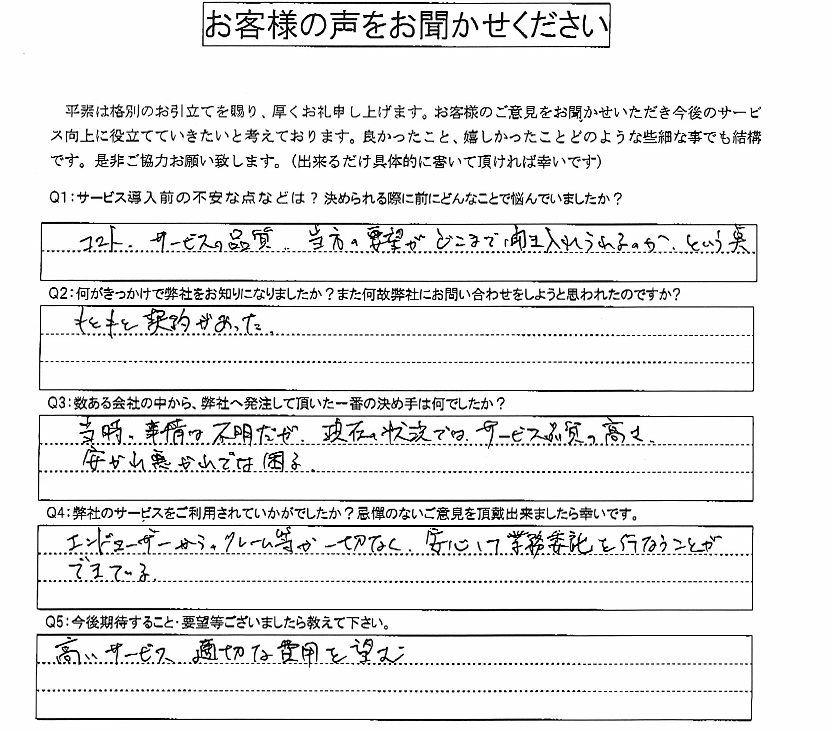 お客様の声をお聞かせください
平素は格別のお引立てを賜り、厚くお礼申し上げます。お客様のご意見をお聞かせいただき今後のサービ
ス向上に役立てていきたいと考えております。良かったこと、嬉しかったことどのような些細な事でも結構
です。是非ご協力お願い致します。(出来るだけ具体的に書いて頂ければ幸いです)
Q1:サービス導入前の不安な点などは?決められる際に前にどんなことで悩んでいましたか?
コスト、サービスの品質、当方の要望がどこまで聞き入れられるのか、という点
Q2:何がきっかけで弊社をお知りになりましたか?また何故弊社にお問い合わせをしようと思われたのですか?
もともと契約があった。
Q3:数ある会社の中から、弊社へ発注して頂いた一番の決め手は何でしたか?
当時の事情は不明だが、現在の状況では、サービス品質の高さ。
安かれ悪かれでは困る。
Q4:弊社のサービスをご利用されていかがでしたか?忌憚のないご意見を頂戴出来ましたら幸いです。
エンドユーザーからのクレーム等が一切なく、安心して業務委託を行なうことが
できている。
Q5:今後期待すること・要望等ございましたら教えて下さい。
高いサービス、適切な費用を望む